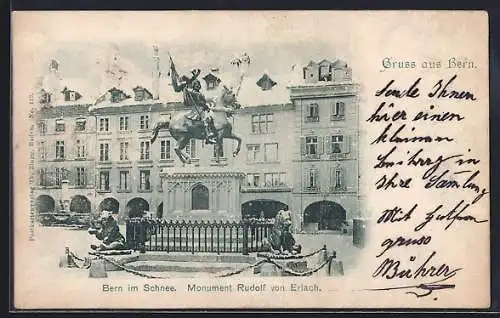 Gruss aus Bern.
Sende Ihnen
hier einen
kleinen
Beitrag in
Ihre Samlung
Mit
gruss
Bührer
Bern im Schnee. Monument Rudolf von Erlach.